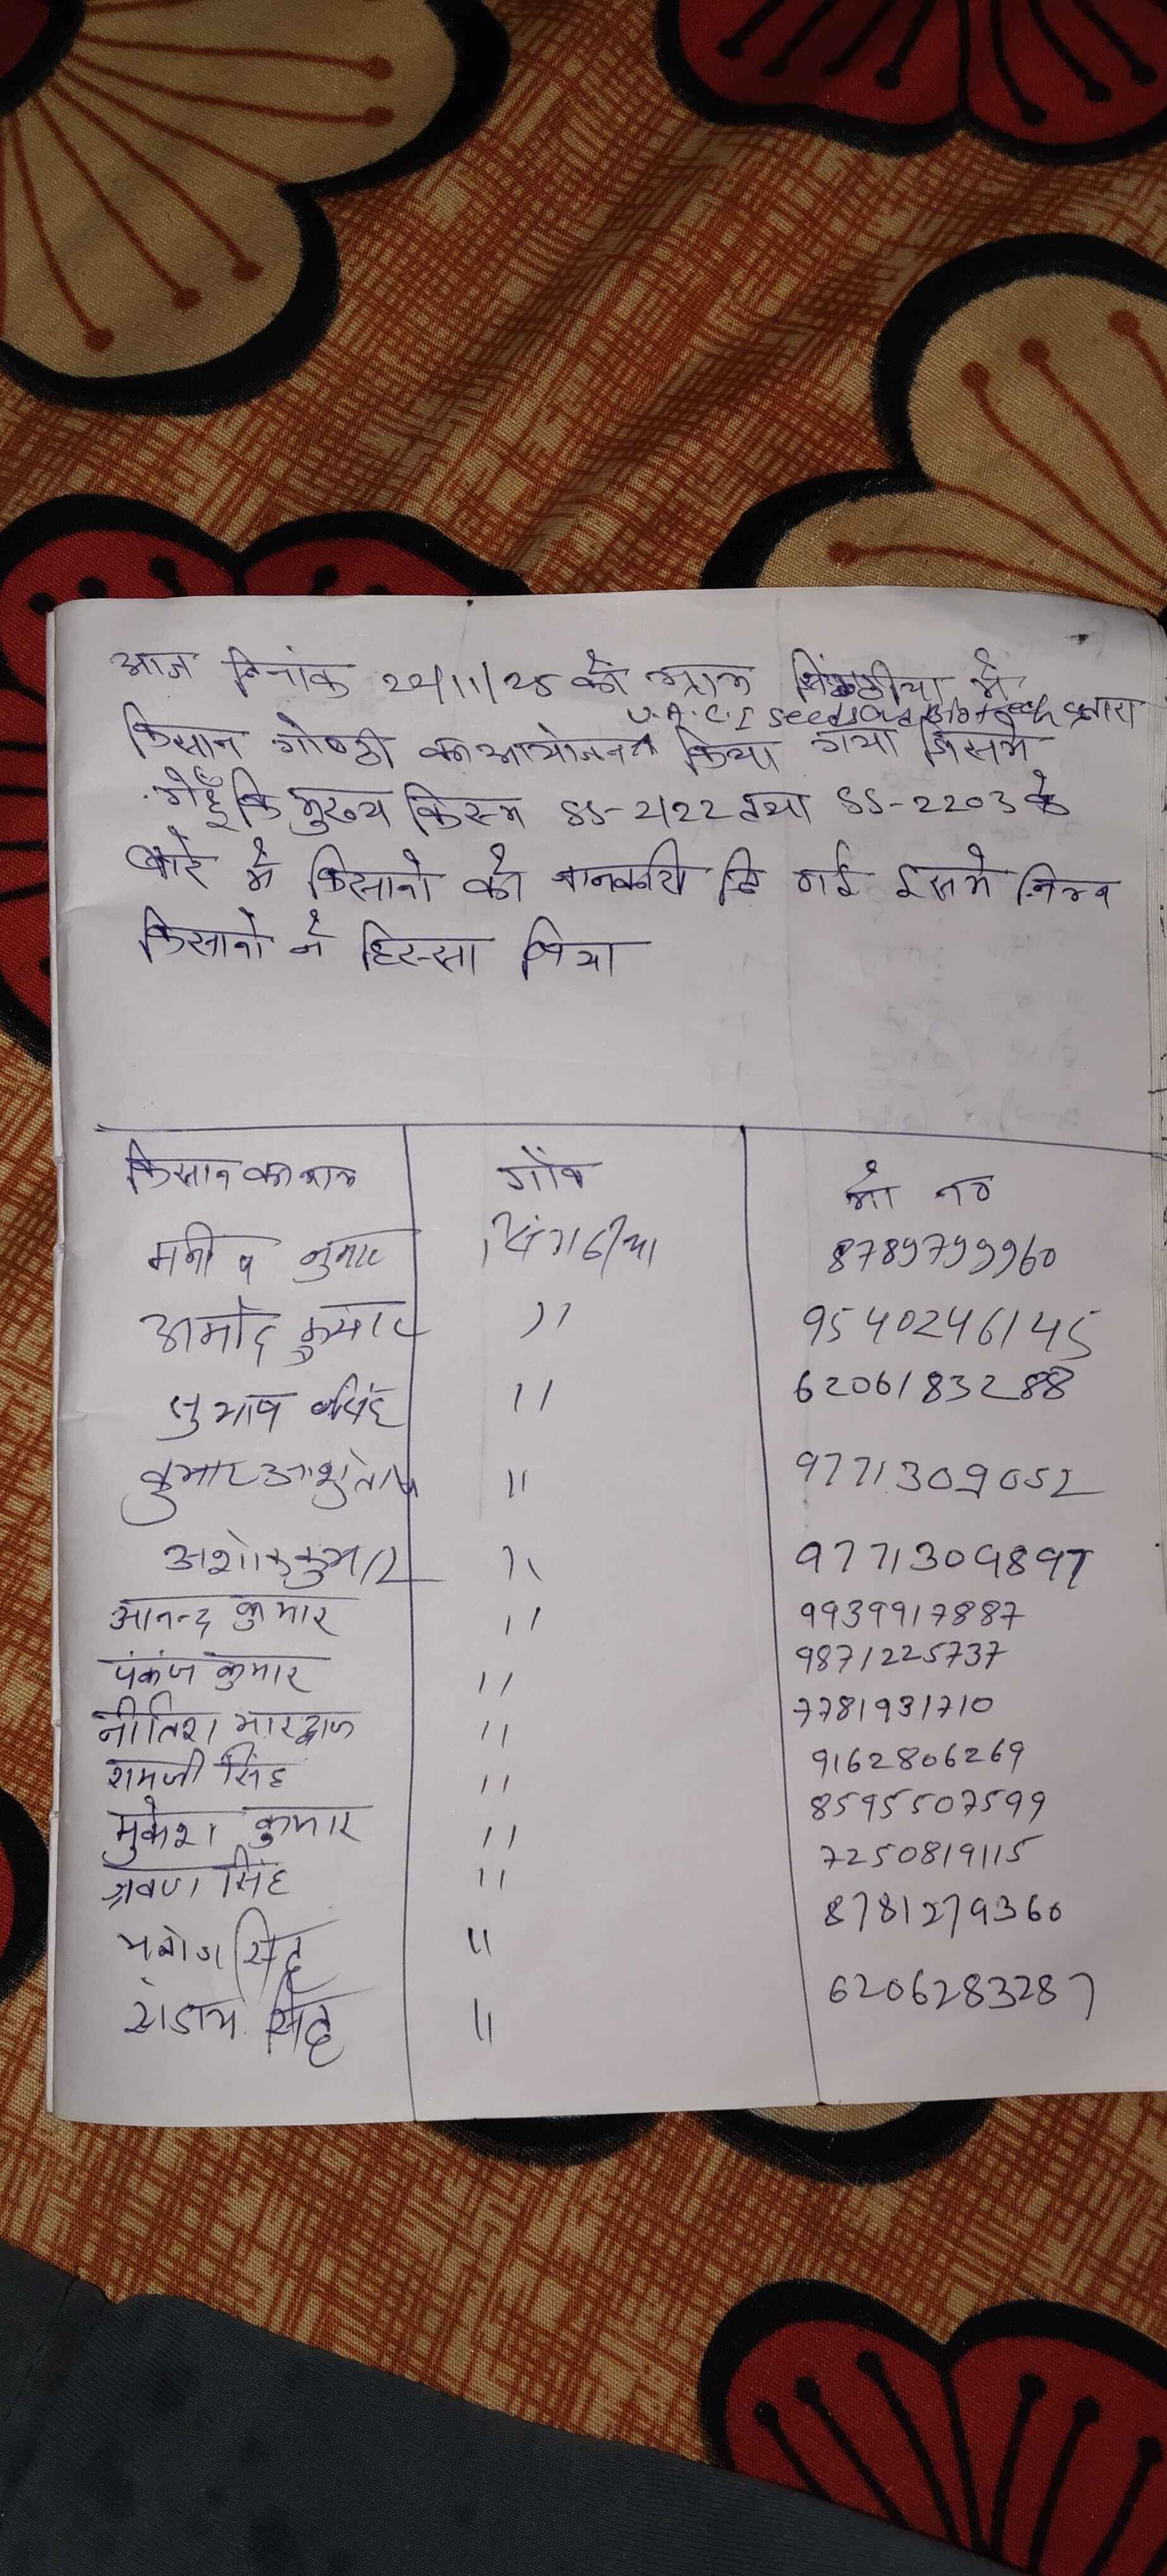 आज दिनांक 22/11/25 को ग्राम सिंगठीया मे
U.A.C.I seeds and Biotech द्वारा
किसान गोष्ठी का आयोजन किया गया जिसमे
गेहूँ कि मुख्य किस्म SS-2122 तथा SS-2203 के
बारे मे किसानो को जानकारी दि गई इसमे निम्न
किसानो ने हिस्सा लिया
किसान का नाम गाँव मो न०
मनीष कुमार सिंगठिया 8789799960
आमोद कुमार " 9540246145
सुभाष सिंह " 6206183288
कुमार आशुतोष " 9771309052
अशोक कुमार " 9771309897
आनन्द कुमार " 9939917887
पंकज कुमार " 9871225737
नीतिश भारद्वाज " 7781931710
रामजी सिंह " 9162806269
मुकेश कुमार " 8595507599
श्रवण सिंह " 7250819115
मनोज सिंह " 8781279360
सिंह " 6206283287